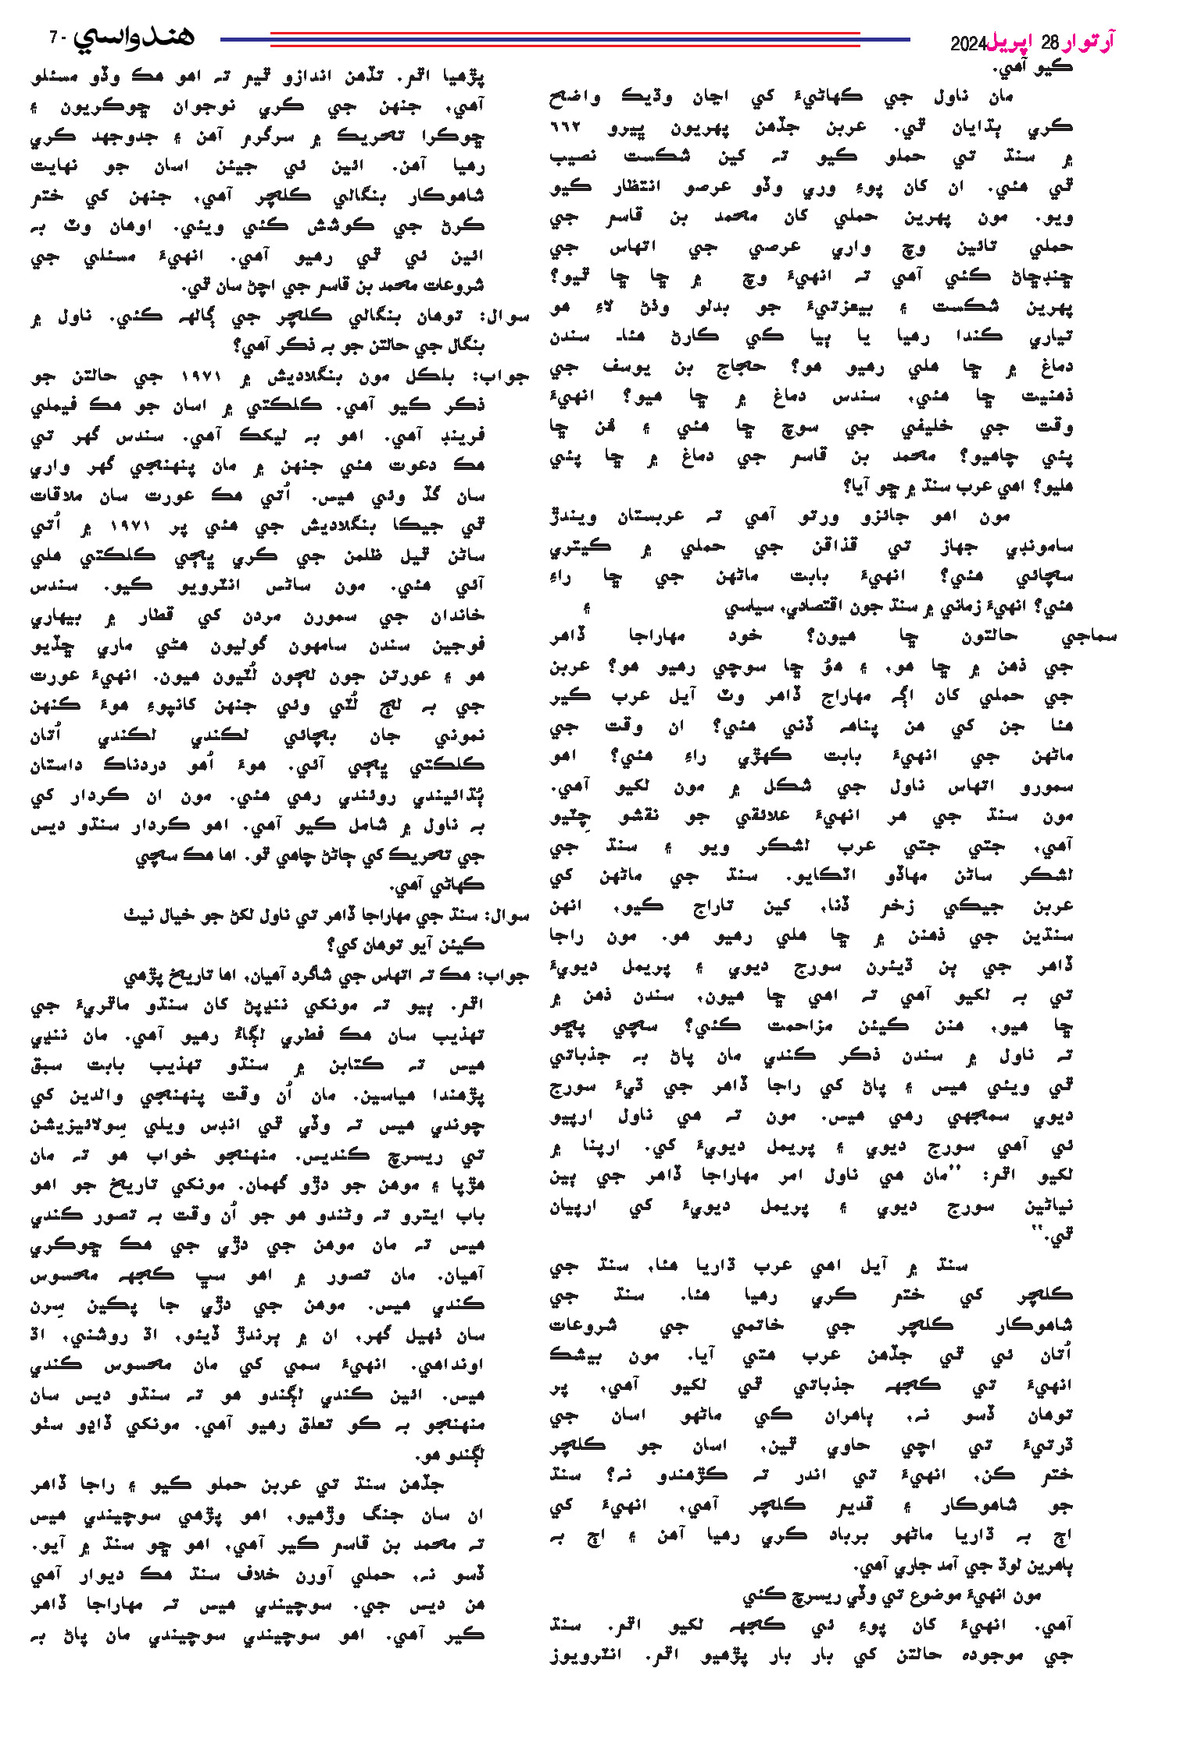 آرتوار 28 اپريل 2024
هندواسي
7 -
ڪيو آهي.
مان ناول جي ڪهاڻيءَ کي اڃان وڌيڪ واضح
ڪري ٻڌايان ٿي. عربن جڏهن پهريون ڀيرو ٦٦٢
۾ سنڌ تي حملو ڪيو ته کين شڪست نصيب
ٿي هئي. ان کان پوءِ وري وڏو عرصو انتظار ڪيو
ويو. مون پهرين حملي کان محمد بن قاسم جي
حملي تائين وچ واري عرصي جي اتهاس جي
ڇنڊڇاڻ ڪئي آهي ته انهيءَ وچ ۾ ڇا ڇا ٿيو؟
پهرين شڪست ۽ بيعزتيءَ جو بدلو وٺڻ لاءِ هو
تياري ڪندا رهيا يا ٻيا ڪي ڪارڻ هئا۔ سندن
دماغ ۾ ڇا هلي رهيو هو؟ حجاج بن يوسف جي
ذهنيت ڇا هئي، سندس دماغ ۾ ڇا هيو؟ انهيءَ
وقت جي خليفي جي سوچ ڇا هئي ۽ هُن ڇا
پئي چاهيو؟ محمد بن قاسم جي دماغ ۾ ڇا پئي
هليو؟ اهي عرب سنڌ ۾ ڇو آيا؟
مون اهو جائزو ورتو آهي ته عربستان ويندڙ
سامونڊي جهاز تي قذاقن جي حملي ۾ ڪيتري
سچائي هئي؟ انهيءَ بابت ماڻهن جي ڇا راءِ
هئي؟ انهيءَ زماني ۾ سنڌ جون اقتصادي، سياسي ۽
سماجي حالتون ڇا هيون؟ خود مهاراجا ڏاهر
جي ذهن ۾ ڇا هو، ۽ هوُ ڇا سوچي رهيو هو؟ عربن
جي حملي کان اڳ مهاراج ڏاهر وٽ آيل عرب ڪير
هئا جن کي هن پناهه ڏني هئي؟ ان وقت جي
ماڻهن جي انهيءَ بابت ڪهڙي راءِ هئي؟ اهو
سمورو اتهاس ناول جي شڪل ۾ مون لکيو آهي.
مون سنڌ جي هر انهيءَ علائقي جو نقشو چِٽيو
آهي، جتي جتي عرب لشڪر ويو ۽ سنڌ جي
لشڪر ساڻن مهاڏو اٽڪايو. سنڌ جي ماڻهن کي
عربن جيڪي زخم ڏنا، کين تاراج ڪيو، انهن
سنڌين جي ذهنن ۾ ڇا هلي رهيو هو. مون راجا
ڏاهر جي ٻن ڌيئرن سورج ديوي ۽ پريمل ديويءَ
تي به لکيو آهي ته اهي ڇا هيون، سندن ذهن ۾
ڇا هيو، هنن ڪيئن مزاحمت ڪئي؟ سچي پڇو
ته ناول ۾ سندن ذڪر ڪندي مان پاڻ به جذباتي
ٿي ويئي هيس ۽ پاڻ کي راجا ڏاهر جي ڌيءَ سورج
ديوي سمجهي رهي هيس. مون ته هي ناول ارپيو
ئي آهي سورج ديوي ۽ پريمل ديويءَ کي. ارپنا ۾
لکيو اٿم: ''مان هي ناول امر مهاراجا ڏاهر جي ٻين
نياڻين سورج ديوي ۽ پريمل ديويءَ کي ارپيان
ٿي.''
سنڌ ۾ آيل اهي عرب ڌاريا هئا، سنڌ جي
ڪلچر کي ختم ڪري رهيا هئا. سنڌ جي
شاهوڪار ڪلچر جي خاتمي جي شروعات
اُتان ئي ٿي جڏهن عرب هتي آيا. مون بيشڪ
انهيءَ تي ڪجهه جذباتي ٿي لکيو آهي، پر
توهان ڏسو نه، ٻاهران ڪي ماڻهو اسان جي
ڌرتيءَ تي اچي حاوي ٿين، اسان جو ڪلچر
ختم ڪن، انهيءَ تي اندر ته ڪڙهندو نه؟ سنڌ
جو شاهوڪار ۽ قديم ڪلچر آهي، انهيءَ کي
اڄ به ڌاريا ماڻهو برباد ڪري رهيا آهن ۽ اڄ به
ٻاهرين لوڌ جي آمد جاري آهي.
مون انهيءَ موضوع تي وڏي ريسرچ ڪئي
آهي. انهيءَ کان پوءِ ئي ڪجهه لکيو اٿم. سنڌ
جي موجوده حالتن کي بار بار پڙهيو اٿم. انٽرويوز
پڙهيا اٿم. تڏهن اندازو ٿيم ته اهو هڪ وڏو مسئلو
آهي، جنهن جي ڪري نوجوان ڇوڪريون ۽
ڇوڪرا تحريڪ ۾ سرگرم آهن ۽ جدوجهد ڪري
رهيا آهن. ائين ئي جيئن اسان جو نهايت
شاهوڪار بنگالي ڪلچر آهي، جنهن کي ختم
ڪرڻ جي ڪوشش ڪئي ويئي. اوهان وٽ به
ائين ئي ٿي رهيو آهي. انهيءَ مسئلي جي
شروعات محمد بن قاسم جي اچڻ سان ٿي.
سوال: توهان بنگالي ڪلچر جي ڳالهه ڪئي. ناول ۾
بنگال جي حالتن جو به ذڪر آهي؟
جواب: بلڪل مون بنگلاديش ۾ ١٩٧١ جي حالتن جو
ذڪر ڪيو آهي. ڪلڪتي ۾ اسان جو هڪ فيملي
فرينڊ آهي. اهو به ليکڪ آهي. سندس گهر تي
هڪ دعوت هئي جنهن ۾ مان پنهنجي گهر واري
سان گڏ وئي هيس. اُتي هڪ عورت سان ملاقات
ٿي جيڪا بنگلاديش جي هئي پر ١٩٧١ ۾ اُتي
ساڻن ٿيل ظلمن جي ڪري ڀڄي ڪلڪتي هلي
آئي هئي. مون ساڻس انٽرويو ڪيو. سندس
خاندان جي سمورن مردن کي قطار ۾ بيهاري
فوجين سندن سامهون گوليون هڻي ماري ڇڏيو
هو ۽ عورتن جون لڄون لُٽيون هيون. انهيءَ عورت
جي به لڄ لُٽي وئي جنهن کانپوءِ هوءَ ڪنهن
نموني جان بچائي لڪندي لڪندي اُتان
ڪلڪتي ڀڄي آئي. هوءَ اُهو دردناڪ داستان
ٻُڌائيندي روئندي رهي هئي. مون ان ڪردار کي
به ناول ۾ شامل ڪيو آهي. اهو ڪردار سنڌو ديس
جي تحريڪ کي ڄاڻڻ چاهي ٿو. اها هڪ سچي
ڪهاڻي آهي.
سوال: سنڌ جي مهاراجا ڏاهر تي ناول لکڻ جو خيال نيٺ
ڪيئن آيو توهان کي؟
جواب: هڪ ته اتهاس جي شاگرد آهيان، اها تاريخ پڙهي
اٿم. ٻيو ته مونکي ننڍپڻ کان سنڌو ماٿريءَ جي
تهذيب سان هڪ فطري لڳاءُ رهيو آهي. مان ننڍي
هيس ته ڪتابن ۾ سنڌو تهذيب بابت سبق
پڙهندا هياسين. مان اُن وقت پنهنجي والدين کي
چوندي هيس ته وڏي ٿي انڊس ويلي سِولائيزيشن
تي ريسرچ ڪنديس. منهنجو خواب هو ته مان
هڙپا ۽ موهن جو دڙو گهمان. مونکي تاريخ جو اهو
باب ايترو ته وڻندو هو جو اُن وقت به تصور ڪندي
هيس ته مان موهن جي دڙي جي هڪ ڇوڪري
آهيان. مان تصور ۾ اهو سڀ ڪجهه محسوس
ڪندي هيس. موهن جي دڙي جا پڪين سِرن
سان ٺهيل گهر، ان ۾ ٻرندڙ ڏيئو، اڌ روشني، اڌ
اونداهي. انهيءَ سمي کي مان محسوس ڪندي
هيس. ائين ڪندي لڳندو هو ته سنڌو ديس سان
منهنجو به ڪو تعلق رهيو آهي. مونکي ڏاڍو سٺو
لڳندو هو.
جڏهن سنڌ تي عربن حملو ڪيو ۽ راجا ڏاهر
ان سان جنگ وڙهيو، اهو پڙهي سوچيندي هيس
ته محمد بن قاسم ڪير آهي، اهو ڇو سنڌ ۾ آيو.
ڏسو نه، حملي آورن خلاف سنڌ هڪ ديوار آهي
هن ديس جي. سوچيندي هيس ته مهاراجا ڏاهر
ڪير آهي. اهو سوچيندي سوچيندي مان پاڻ به